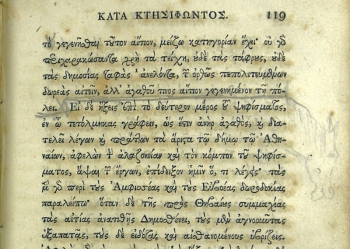 ΚΑΤΑ ΚΤΗΣΙΦΩΝΤΟΣ. 119
τὸ γεγενῆσθαι τούτων αἴτιον, μείζω κατηγορίαν ἔχει· οὐ γὰρ
περιχαρακώσαντα χρὴ τὰ τείχη, οὐδὲ τὰς τάφρους, οὐδὲ
τὰς δημοσίας ταφὰς ἀνελόντα, τὸν ὀρθῶς πεπολιτευμένον
δωρεὰς αἰτεῖν, ἀλλ' ἀγαθοῦ τινος αἴτιον γεγενημένον τῇ πό-
λει. Εἰ δὲ ἥξεις ἐπὶ τὸ δεύτερον μέρος τοῦ ψηφίσματος,
ἐν ᾧ τετόλμηκας γράφειν, ὡς ἔστιν ἀνὴρ ἀγαθὸς, καὶ δια-
τελεῖ λέγων καὶ πράττων τὰ ἄριστα τῷ δήμῳ τῷ Ἀθη-
ναίων, ἀφελὼν τὴν ἀλαζονείαν καὶ τὸν κόμπον τοῦ ψηφίσ-
ματος, ἅψαι τῶν ἔργων, ἐπίδειξον ἡμῖν ὅ, τι λέγεις· τὰς
μὲν γὰρ περὶ τοὺς Ἀμφισσέας καὶ τοὺς Εὐβοέας δωροδοκίας
παραλείπω· ὅταν δὲ τῆς πρὸς Θηβαίους συμμαχίας
τὰς αἰτίας ἀνατιθῇς Δημοσθένει, τοὺς μὲν ἀγνοοῦντας
ἐξαπατᾷς, τοὺς δὲ εἰδότας καὶ αἰσθανομένους ὑβρίζεις.